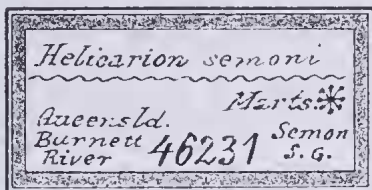 Helicarion semoni
Marts.
Queensld.
Burnett
River
46231
Semon
S. G.